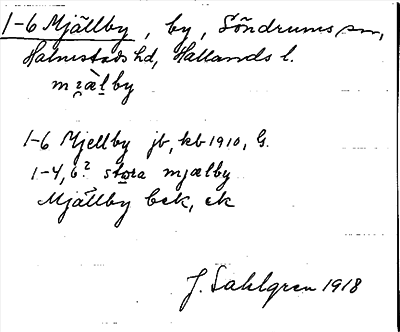 1-6 Mjällby, by, Söndrums sn,
Halmstads hd, Hallands l.
mjælby
1-6 Mjellby jb, kb 1910, G.
1-4, 6? stora mjælby
Mjällby bek, ek
J. Sahlgren 1918